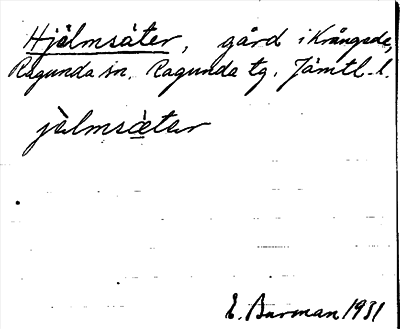 Hjälmsäter, gård i Krångede,
Ragunda sn. Ragunda tg. Jämtl. l.
jàlmsæ̀tar
E. Burman 1931